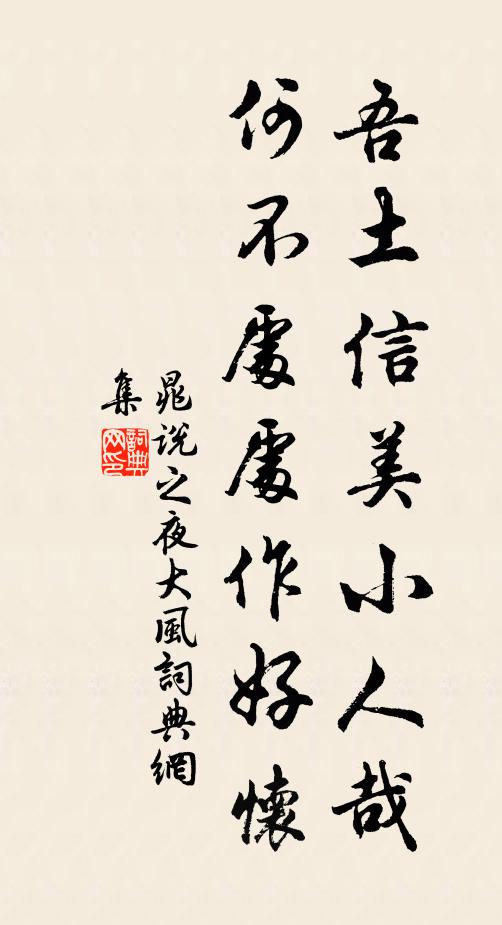 吾土信美小人哉
何不處處作好懷
晁說之夜大風詞典網
集
詞典
网印